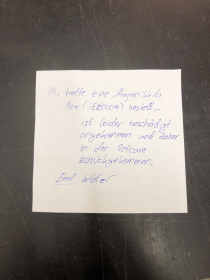 Hi, hatte eine
Box ( bestellt...
ist leider beschädigt
angekommen und daher
in der Retoure
zurückgekommen.
Emil